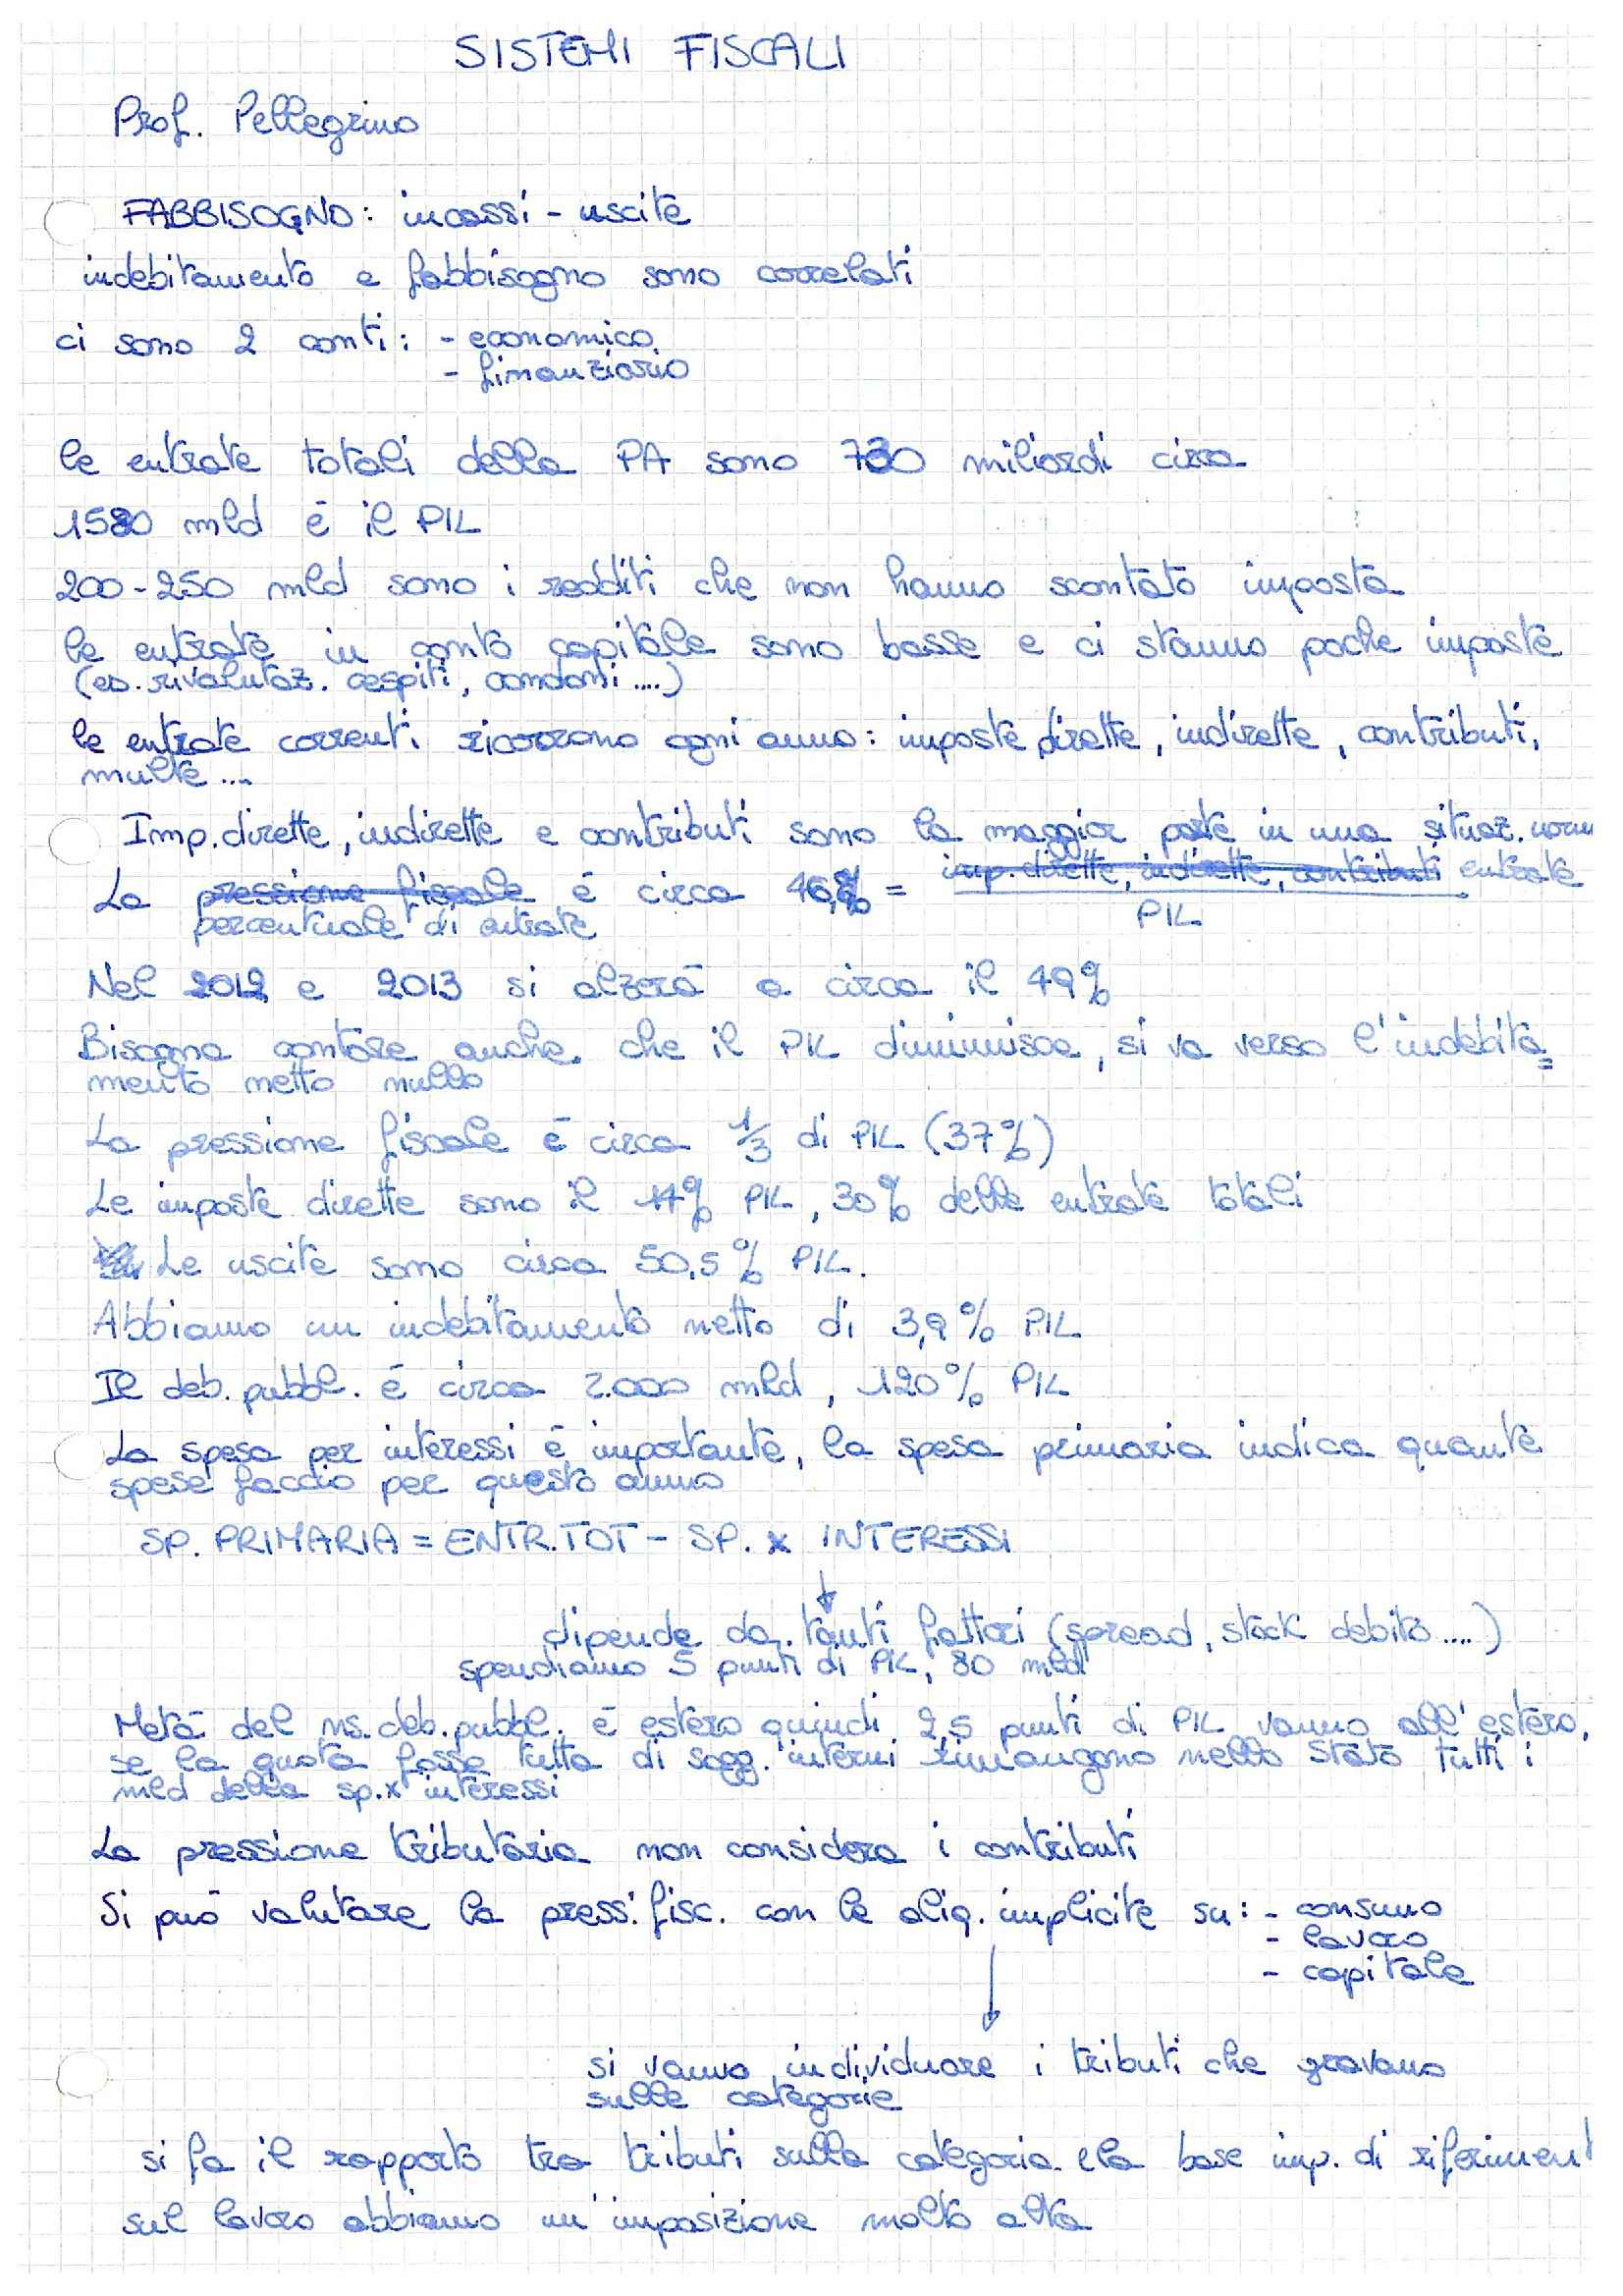 SISTEMI FISCALI
Prof. Pellegrino
FABBISOGNO: incassi - uscite
indebitamento e fabbisogno sono correlati
ci sono 2 conti: - economico
- finanziario
le entrate totali della PA sono 730 miliardi circa
1580 mld è il PIL
200-250 mld sono i redditi che non hanno scontato imposta
le entrate in conto capitale sono basse e ci stanno poche imposte
(es. rivalutaz. cespiti, condoni ....)
le entrate correnti ricorrono ogni anno: imposte dirette, indirette, contributi,
multe ....
Imp. dirette, indirette e contributi sono la maggior parte in una situaz. norm
La pressione fiscale è circa 46% = imp. dirette, indirette, contributi entrate
percentuale di entrate PIL
Nel 2012 e 2013 si alzerà a circa il 49%
Bisogna contare anche che il PIL diminuisce, si va verso l'indebita=
mento netto nullo
La pressione fiscale è circa 1/3 di PIL (37%)
Le imposte dirette sono il 14% PIL, 30% delle entrate totali
Le uscite sono circa 50,5% PIL.
Abbiamo un indebitamento netto di 3,9% PIL
Il deb. pubbl. è circa 2.000 mld, 120% PIL
La spesa per interessi è importante, la spesa primaria indica quante
spese faccio per questo anno
SP. PRIMARIA = ENTR. TOT - SP. x INTERESSI
dipende da tanti fattori (spread, stock debito ....)
spendiamo 5 punti di PIL, 80 mld
Metà del ns. deb. pubbl. è estero quindi 2,5 punti di PIL vanno all'estero,
se la quota fosse tutta di sogg. interni rimangono nello Stato tutti i
mld della sp. x interessi
La pressione tributaria non considera i contributi
Si può valutare la press. fisc. con le aliq. implicite su: - consumo
- lavoro
- capitale
si vanno individuare i tributi che gravano
sulle categorie
si fa il rapporto tra tributi sulla categoria e la base imp. di riferiment
sul lavoro abbiamo un'imposizione molto alta